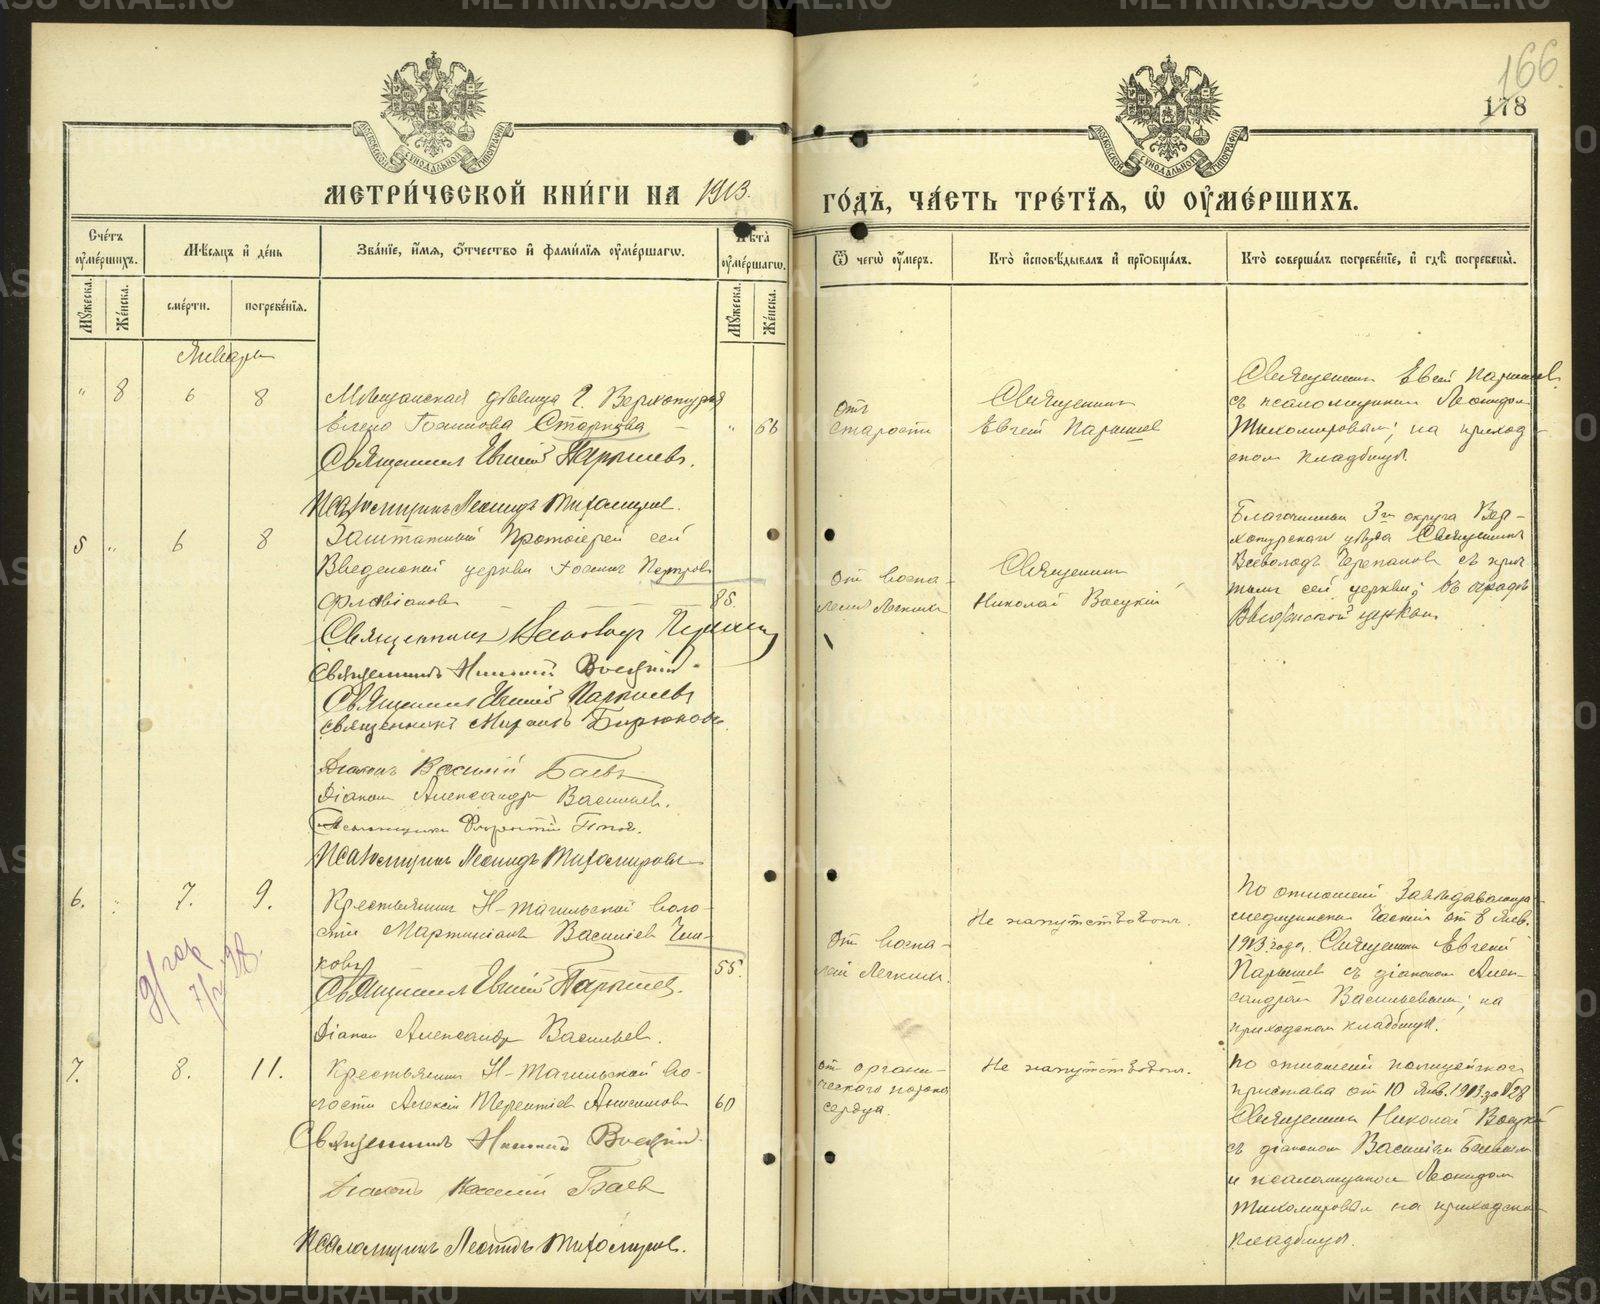 166
178
МЕТРИ́ЧЕСКОЙ КНИ́ГИ НА 1913.
ГО́ДЪ, ЧА́СТЬ ТРЕ́ТЇѦ, Ѽ ОУМЕ́РШИХЪ.
Сче́тъ оумершихъ.
Мѣ́сяцъ и де́нь
Зва́нїе, и́мя, о́тчество и фами́лїя оуме́ршагѡ.
Лѣ́та оуме́ршагѡ.
Ѿ чегѡ̀ оу́меръ.
Кто̀ исповѣ́дывалъ и прїобща́лъ.
Кто̀ соверша́лъ погребе́нїе, и гдѣ̀ погребены̀.
Му́жеска.
Же́нска.
сме́рти.
погребе́нїя.
Му́жеска.
Же́нска.
Январь
" 8 6 8
Мѣщанская дѣвица г. Верхотурья
Елена Старкова
" 66
Священникъ Евгеній Парышевъ.
Псаломщикъ Леонидъ Тихомировъ.
отъ
старости
Священникъ
Евгеній Парышев
Священник Евгеній Парышев
съ псаломщиком Леонидом
Тихомировым; на приход-
ском кладбищѣ.
5 " 6 8
Заштатный Протоіерей сей
Введенской церкви Іоаннъ Петровъ
Флавіановъ
85.
Священникъ Всеволодъ
Священникъ Николай Воецкій.
Священникъ Евгеній Парышевъ
священникъ Бирюковъ.
Діаконъ Василій Баевъ
Діакон Александръ Васильев.
Псаломщикъ Попов.
Псаломщикъ Леонидъ Тихомировъ
от воспа-
ленія легкихъ
Священник
Николай Воецкій
Благочинный 3го округа Вер-
хотурскаго уѣзда Священникъ
Всеволод Черепанов съ прич-
том сей церкви; въ оградѣ
Введенской церкви.
6. " 7. 9.
Крестьянинъ Н-Тагильской воло-
сти Мартиніанъ Васильев
ковъ
55.
Священникъ Евгеній Парышев.
Діакон Александр Васильев.
От воспа-
леній легкихъ.
Не напутствован.
По отношенію Завѣдывающаго
медицинской Частію от 8 Янв.
1913 года, Священник Евгеній
Парышев съ діаконом Алек-
сандром Васильевым; на
приходском кладбищѣ.
7. 8. 11.
Крестьянин Н-Тагильской во-
лости Алексій Терентіев Анисимов
60
Священникъ Николай Воецкій.
Діаконъ Василій Баев
Псаломщикъ Леонидъ Тихомиров.
от органи-
ческаго порока
сердца.
Не напутствован.
По отношенію полицейскаго
пристава от 10 Янв. 1913 за № 28
Священник Николай Воецкій
съ діаконом Василіем Баевым
и псаломщиком Леонидом
Тихомировым на приходском
кладбищѣ.
METRIKI.GASO-URAL.RU